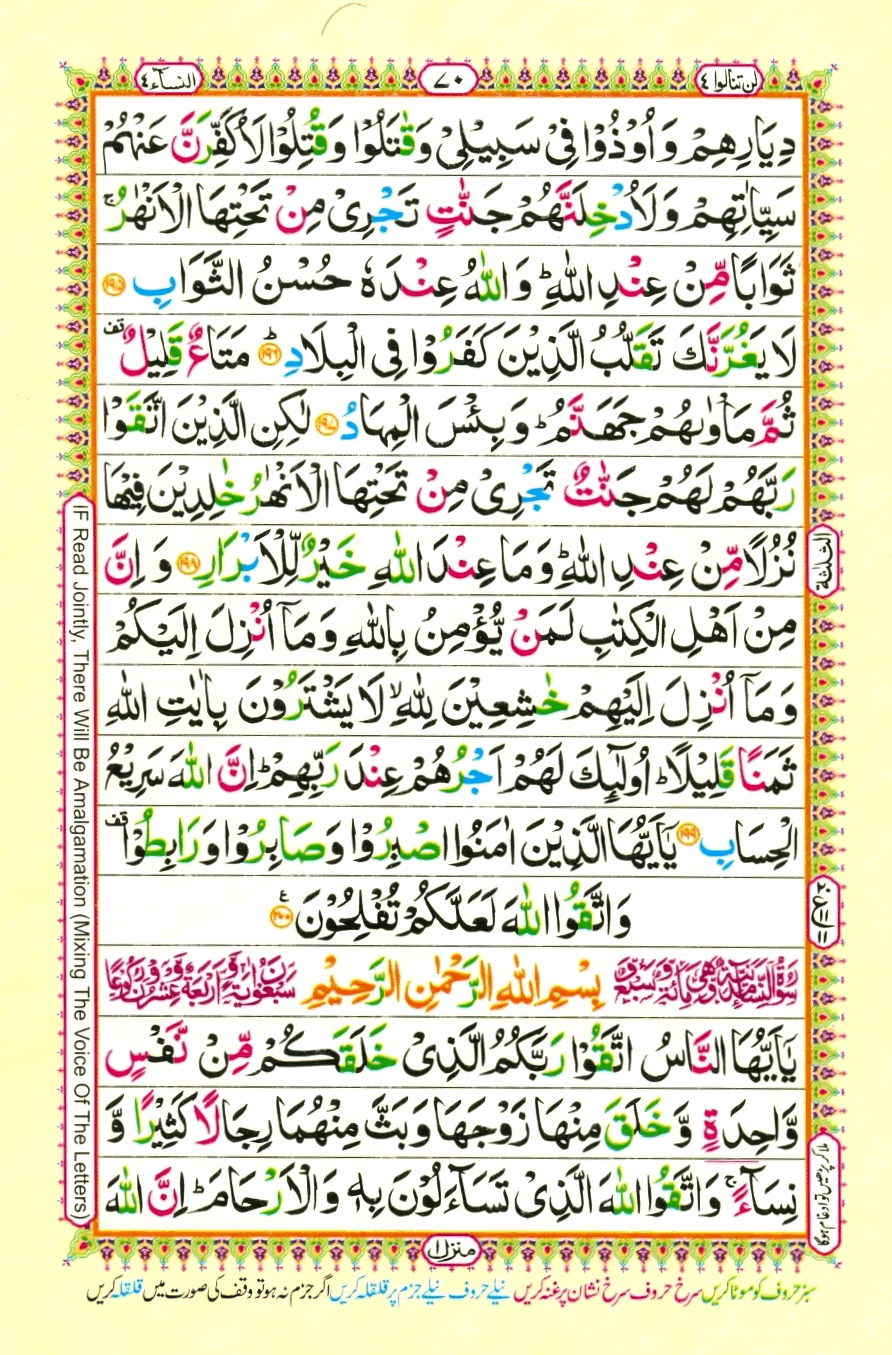 لن تنالوا ٤
٧٠
النسآء ٤
دِیَارِهِمْ وَ اُوْذُوْا فِیْ سَبِیْلِیْ وَ قٰتَلُوْا وَ قُتِلُوْا لَاُكَفِّرَنَّ عَنْهُمْ
سَیِّاٰتِهِمْ وَ لَاُدْخِلَنَّهُمْ جَنّٰتٍ تَجْرِیْ مِنْ تَحْتِهَا الْاَنْهٰرُ ۚ
ثَوَابًا مِّنْ عِنْدِ اللّٰهِ ؕ وَ اللّٰهُ عِنْدَهٗ حُسْنُ الثَّوَابِ ﴿۱۹۵﴾
لَا یَغُرَّنَّكَ تَقَلُّبُ الَّذِیْنَ كَفَرُوْا فِی الْبِلَادِ ﴿۱۹۶﴾ ؕ مَتَاعٌ قَلِیْلٌ قف
ثُمَّ مَاْوٰىهُمْ جَهَنَّمُ ؕ وَ بِئْسَ الْمِهَادُ ﴿۱۹۷﴾ لٰكِنِ الَّذِیْنَ اتَّقَوْا
رَبَّهُمْ لَهُمْ جَنّٰتٌ تَجْرِیْ مِنْ تَحْتِهَا الْاَنْهٰرُ خٰلِدِیْنَ فِیْهَا
نُزُلًا مِّنْ عِنْدِ اللّٰهِ ؕ وَ مَا عِنْدَ اللّٰهِ خَیْرٌ لِّلْاَبْرَارِ ﴿۱۹۸﴾ وَ اِنَّ
مِنْ اَهْلِ الْكِتٰبِ لَمَنْ یُّؤْمِنُ بِاللّٰهِ وَ مَاۤ اُنْزِلَ اِلَیْكُمْ
وَ مَاۤ اُنْزِلَ اِلَیْهِمْ خٰشِعِیْنَ لِلّٰهِ ۙ لَا یَشْتَرُوْنَ بِاٰیٰتِ اللّٰهِ
ثَمَنًا قَلِیْلًا ؕ اُولٰٓىِٕكَ لَهُمْ اَجْرُهُمْ عِنْدَ رَبِّهِمْ ؕ اِنَّ اللّٰهَ سَرِیْعُ
الْحِسَابِ ﴿۱۹۹﴾ یٰۤاَیُّهَا الَّذِیْنَ اٰمَنُوا اصْبِرُوْا وَ صَابِرُوْا وَ رَابِطُوْا قف
وَ اتَّقُوا اللّٰهَ لَعَلَّكُمْ تُفْلِحُوْنَ ﴿۲۰۰﴾ ع
بِسْمِ اللّٰهِ الرَّحْمٰنِ الرَّحِیْمِ
یٰۤاَیُّهَا النَّاسُ اتَّقُوْا رَبَّكُمُ الَّذِیْ خَلَقَكُمْ مِّنْ نَّفْسٍ
وَّاحِدَةٍ وَّ خَلَقَ مِنْهَا زَوْجَهَا وَ بَثَّ مِنْهُمَا رِجَالًا كَثِیْرًا وَّ
نِسَآءً ۚ وَ اتَّقُوا اللّٰهَ الَّذِیْ تَسَآءَلُوْنَ بِهٖ وَ الْاَرْحَامَ ؕ اِنَّ اللّٰهَ
الثلثة
ملا کر پڑھیں تو ادغام ہوگا
IF Read Jointly, There Will Be Amalgamation (Mixing The Voice Of The Letters)
منزل ۱
سبز حروف کو موٹا کریں سرخ حروف سرخ نشان پر غنہ کریں نیلے حروف نیلے جزم پر قلقلہ کریں اگر جزم نہ ہو تو وقف کی صورت میں قلقلہ کریں